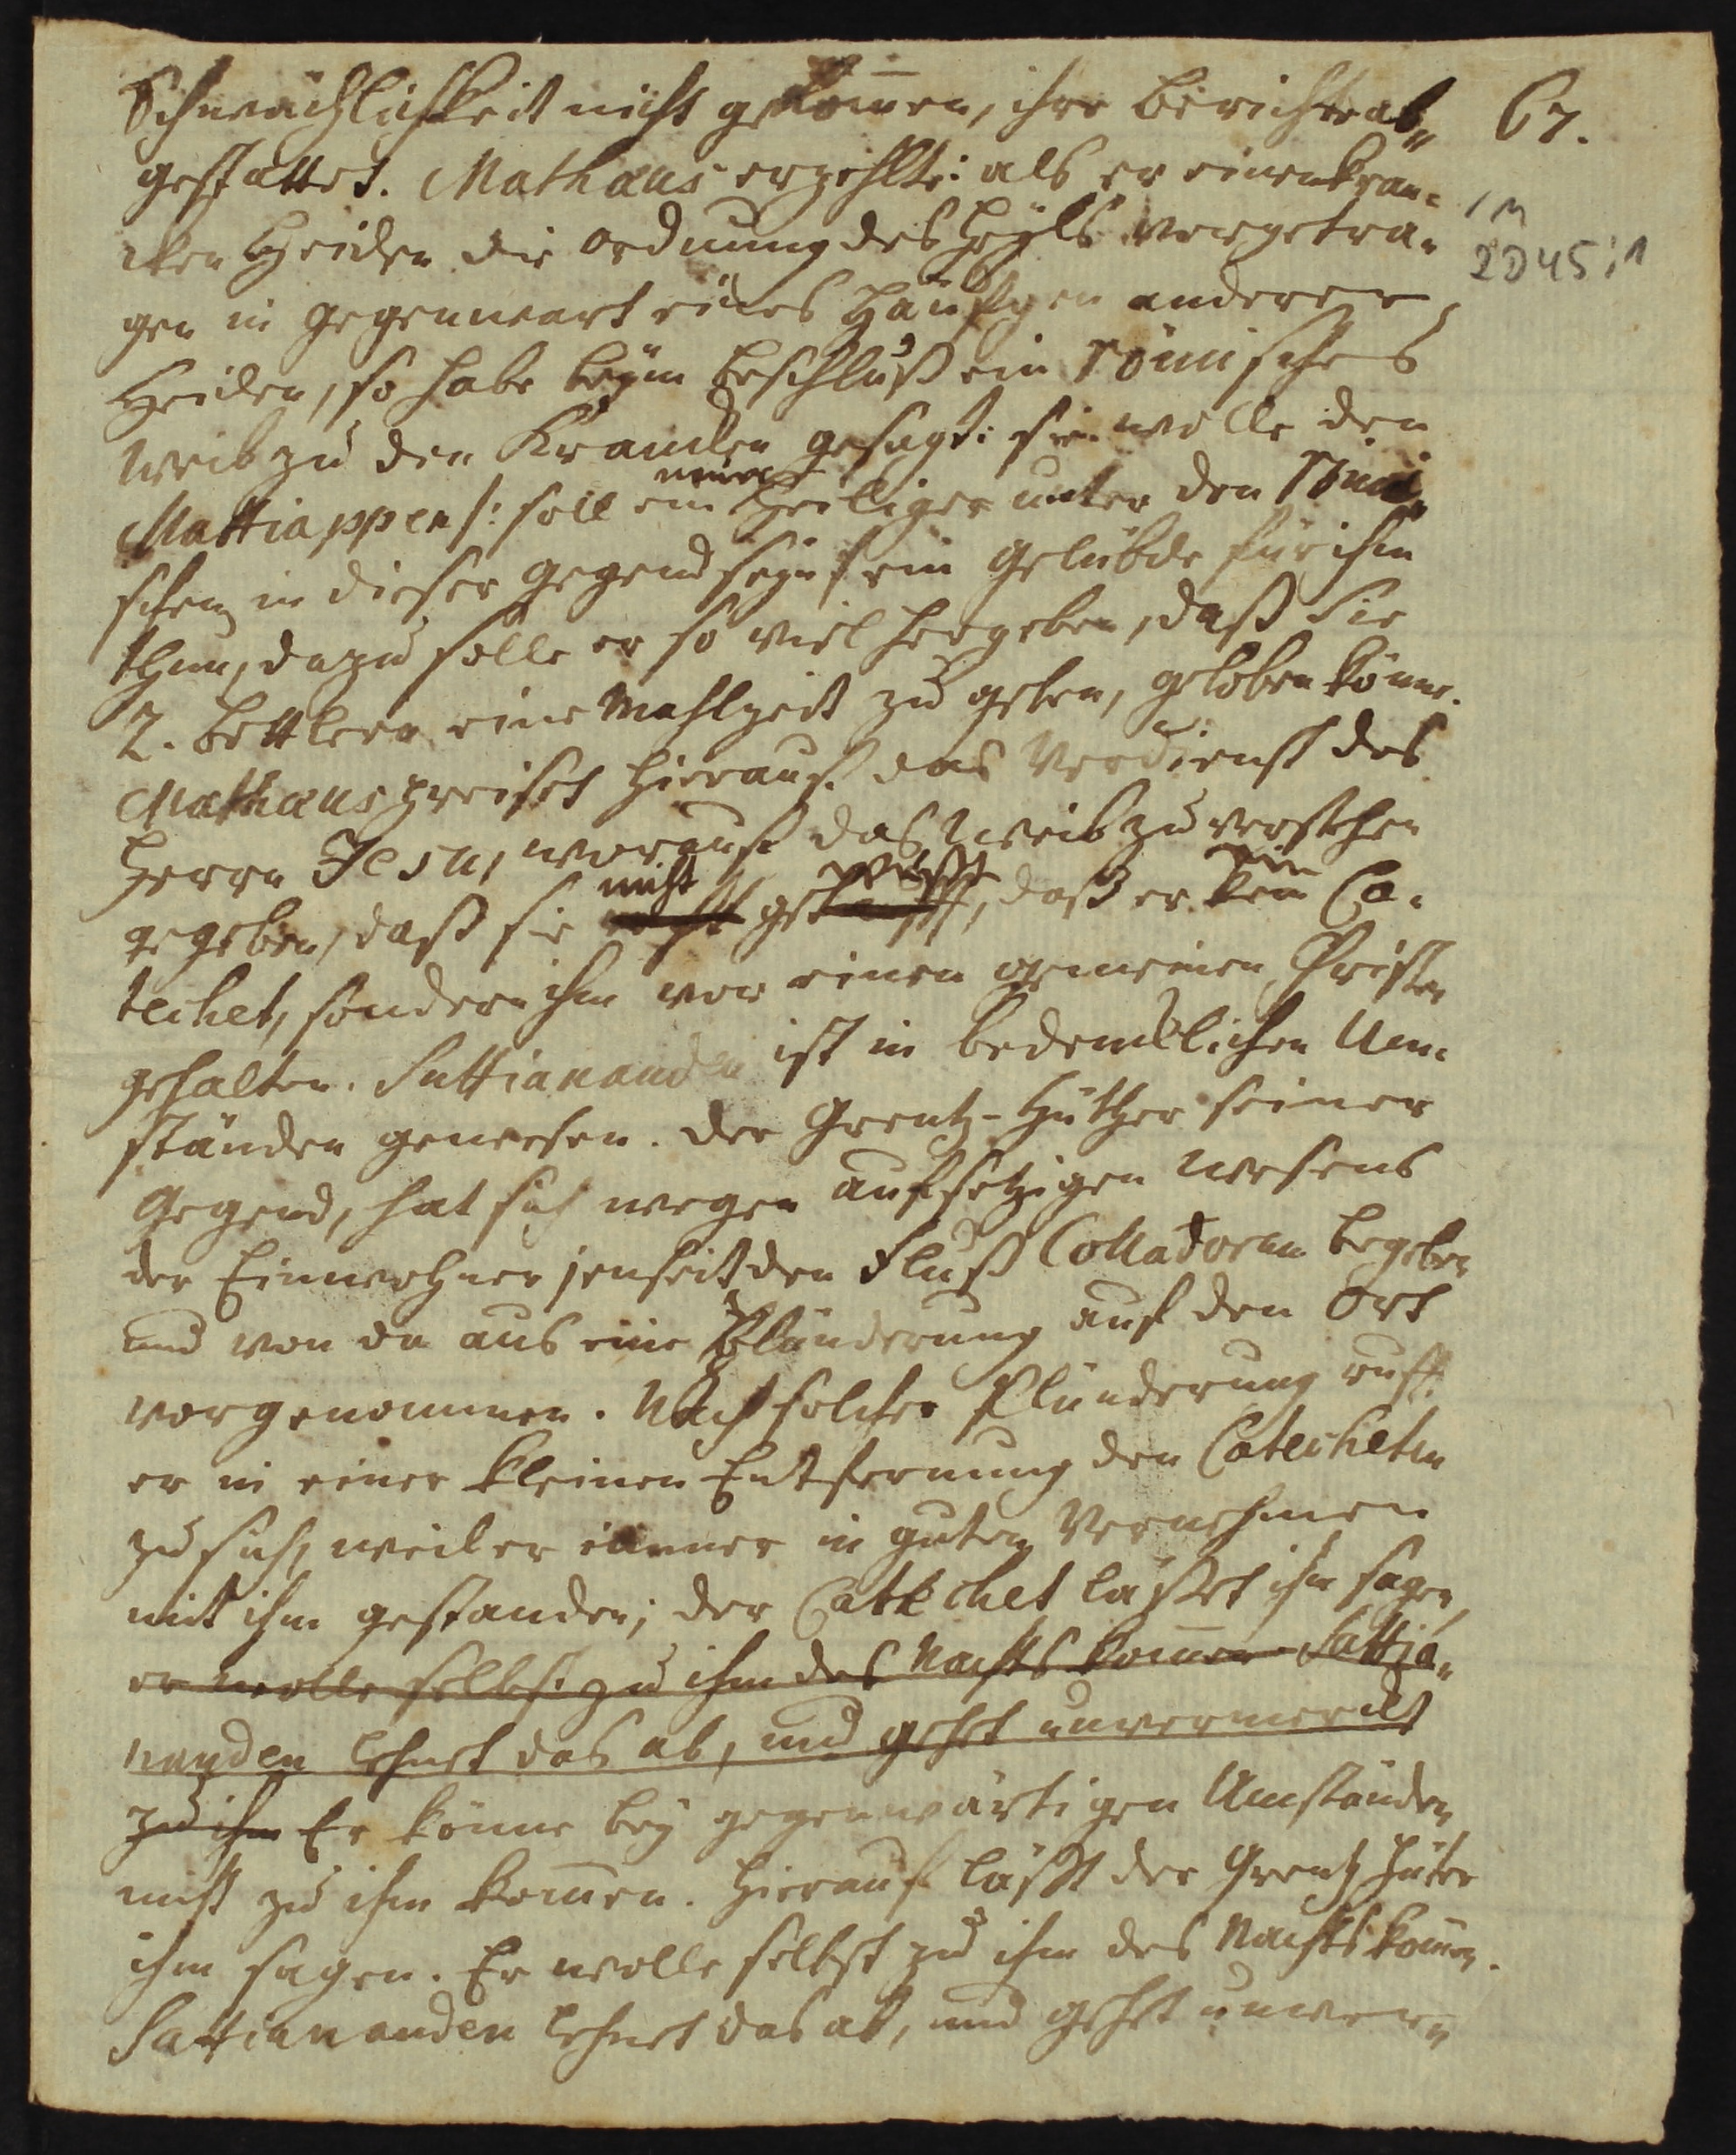 Schwächlichkeit nicht gekom̄en, ihre Berichte ab„ 67.
gestattet. Mathaeus erzehlte: als er einen kran„
cken Heiden die Ordnung des Heyls vorgetra„ 1 M
2D45:1
gen in Gegenwart eines Häufgen anderer
Heiden, so habe beym Beschluß ein Römisches
Weib zu den Krancken gesagt: sie wolle den
neuer
Mattiappen /: soll ein Heiliger unter den Römi„
schen in dieser Gegend seyn :/ ein Gelübde für ihn
thun, dazu solle er so viel hergeben, daß sie
2. Bettlern eine Mahlzeit zu geben, geloben könne.
Mathaeus preiset hierauf das Verdienst des
Herrn Jesu, worauf das Weib zu verstehen
nicht gewust
gegeben, daß sie, daß er ein Ca„
techet, sondern ihn vor einen gemeinen Christen
gehalten. Sattiananden ist in bedencklichen Um„
ständen gewesen. Der Grentz-Hüther seiner
Gegend, hat sich wegen aufsetzigen Wesens
der Einwohner jenseit den Fluß Colladoram begeben
und von da aus eine Plünderung auf den Ort
vorgenommen. Nach solcher Plünderung ruft
er in einer kleinen Entfernung den Catecheten
zu sich, weil er immer in guten Vernehmen
mit ihm gestanden; der Catechet läßet ihm sagen,
er wolle selbst zu ihm des Nachts kom̄en Sattia„
nanden lehnet das ab, und gehet unvermerckt
zu ihm Er könne bey gegenwärtigen Umständen
nicht zu ihm kom̄en. Hierauf läßt der Grentz Hüter
ihm sagen. Er wolle selbst zu ihm des Nachts kom̄en.
Sattiananden lehnet das ab, und gehet unver„